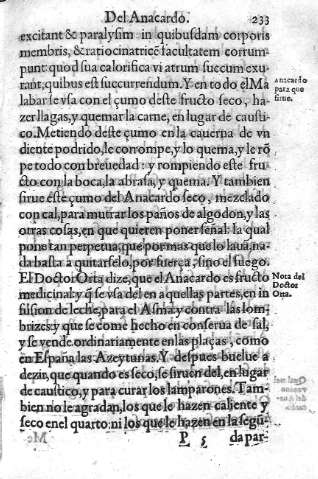 Del Anacardo. 233
excitant & paralysim: in quibusdam corporis
membris, & ratiocinatricē facultatem corrum
punt: quod sua calorifica vi atrum succum exu-
rant, quibus est succurrendum. Y en todo el Ma
labar se vsa con el çumo deste fructo seco, ha-
zer llagas, y quemar la carne, en lugar de causti-
co. Metiendo deste çumo en la cauerna de vn
diente podrido, le corrompe, y lo quema, y le rō
pe todo con breuedad: y rompiendo este fru-
cto con la boca, la abrasa, y quema. Y tambien
sirue este çumo del Anacardo seco, mezclado
con cal, para mutrar los paños de algodon, y las
otras cosas, en que quieren poner señal: la qual
pone tan perpetua, que por mas que lo laua, na-
da basta a quitarselo, por fuerça, sino el fuego.
El Doctor Orta dize, que el Anacardo es fructo
medicinal: y q̃ se vsa del en aquellas partes, en in
fusion de leche, para el Asma, y contra las lom-
brizes: y que se come hecho en conserua de sal,
y se vende ordinariamente en las plaças, como
en España las Azeytunas. Y despues buelue a
dezir, que quando es seco, se siruen del, en lugar
de caustico, y para curar los lamparones. Tam-
bien no le agradan, los que le hazen caliente y
seco en el quarto: ni los que le hazen en la segū-
P 5 da par-
Anacardo
para que
sirue.
Nota del
Doctor
Orta.